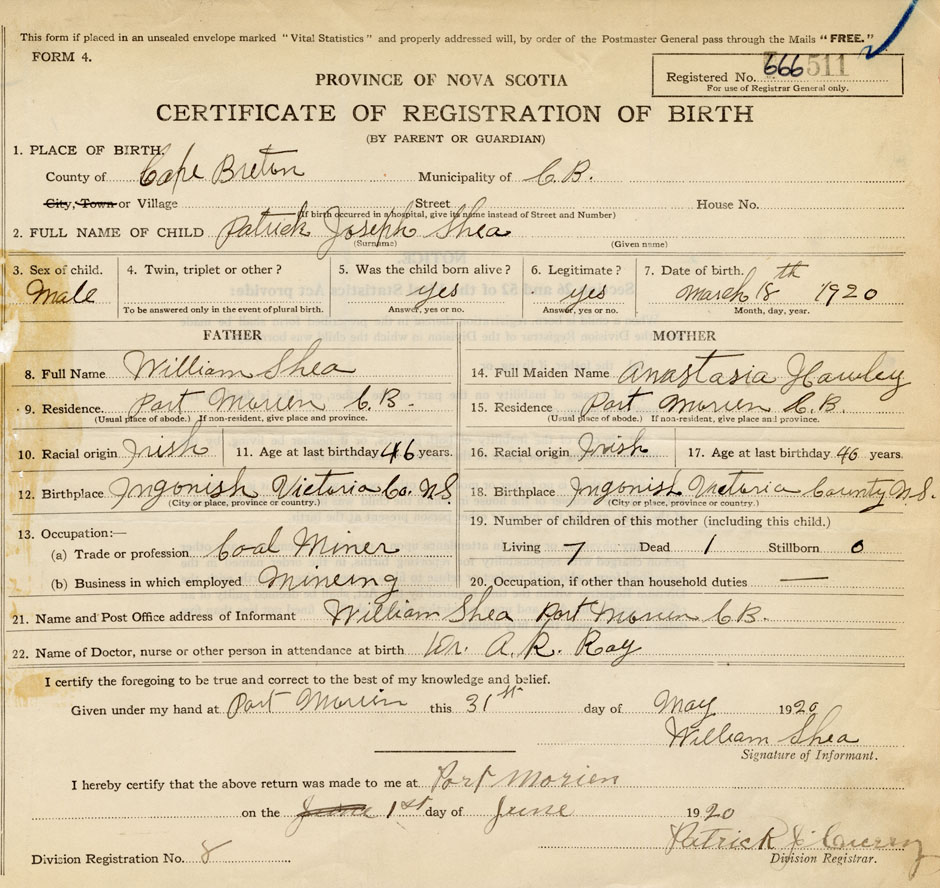 This form if placed in an unsealed envelope marked "Vital Statistics" and properly addressed will, by order of the Postmaster General pass through the Mails "FREE."
FORM 4.
Registered No. 666 511
For use of Registrar General only.
PROVINCE OF NOVA SCOTIA
CERTIFICATE OF REGISTRATION OF BIRTH
(BY PARENT OR GUARDIAN)
1. PLACE OF BIRTH.
County of Cape Breton Municipality of C.B.
City, Town or Village Street House No.
(If birth occurred in a hospital, give its name instead of Street and Number)
2. FULL NAME OF CHILD Patrick Joseph Shea
(Surname) (Given name)
3. Sex of child. 4. Twin, triplet or other? 5. Was the child born alive? 6. Legitimate? 7. Date of birth.
Male yes yes March 18th 1920
To be answered only in the event of plural birth. Answer, yes or no. Answer, yes or no. Month, day, year.
FATHER MOTHER
8. Full Name William Shea 14. Full Maiden Name Anastasia Hawley
9. Residence. Port Morien C.B. 15. Residence Port Morien C.B.
(Usual place of abode.) If non-resident, give place and province. (Usual place of abode.) If non-resident, give place and province.
10. Racial origin Irish 11. Age at last birthday 46 years. 16. Racial origin Irish 17. Age at last birthday 40 years.
12. Birthplace Ingonish Victoria Co. N.S. 18. Birthplace Ingonish Victoria County N.S.
(City or place, province or country.) (City or place, province or country.)
13. Occupation:— 19. Number of children of this mother (including this child.)
(a) Trade or profession Coal Miner Living 7 Dead 1 Stillborn 0
(b) Business in which employed Mineing 20. Occupation, if other than household duties —
21. Name and Post Office address of Informant William Shea Port Morien C.B.
22. Name of Doctor, nurse or other person in attendance at birth Dr. A. R. Roy
I certify the foregoing to be true and correct to the best of my knowledge and belief.
Given under my hand at Port Morien this 31st day of May 1920
William Shea
Signature of Informant.
I hereby certify that the above return was made to me at Port Morien
on the June 1st day of June 1920
Patrick
Division Registration No. 8 Division Registrar.